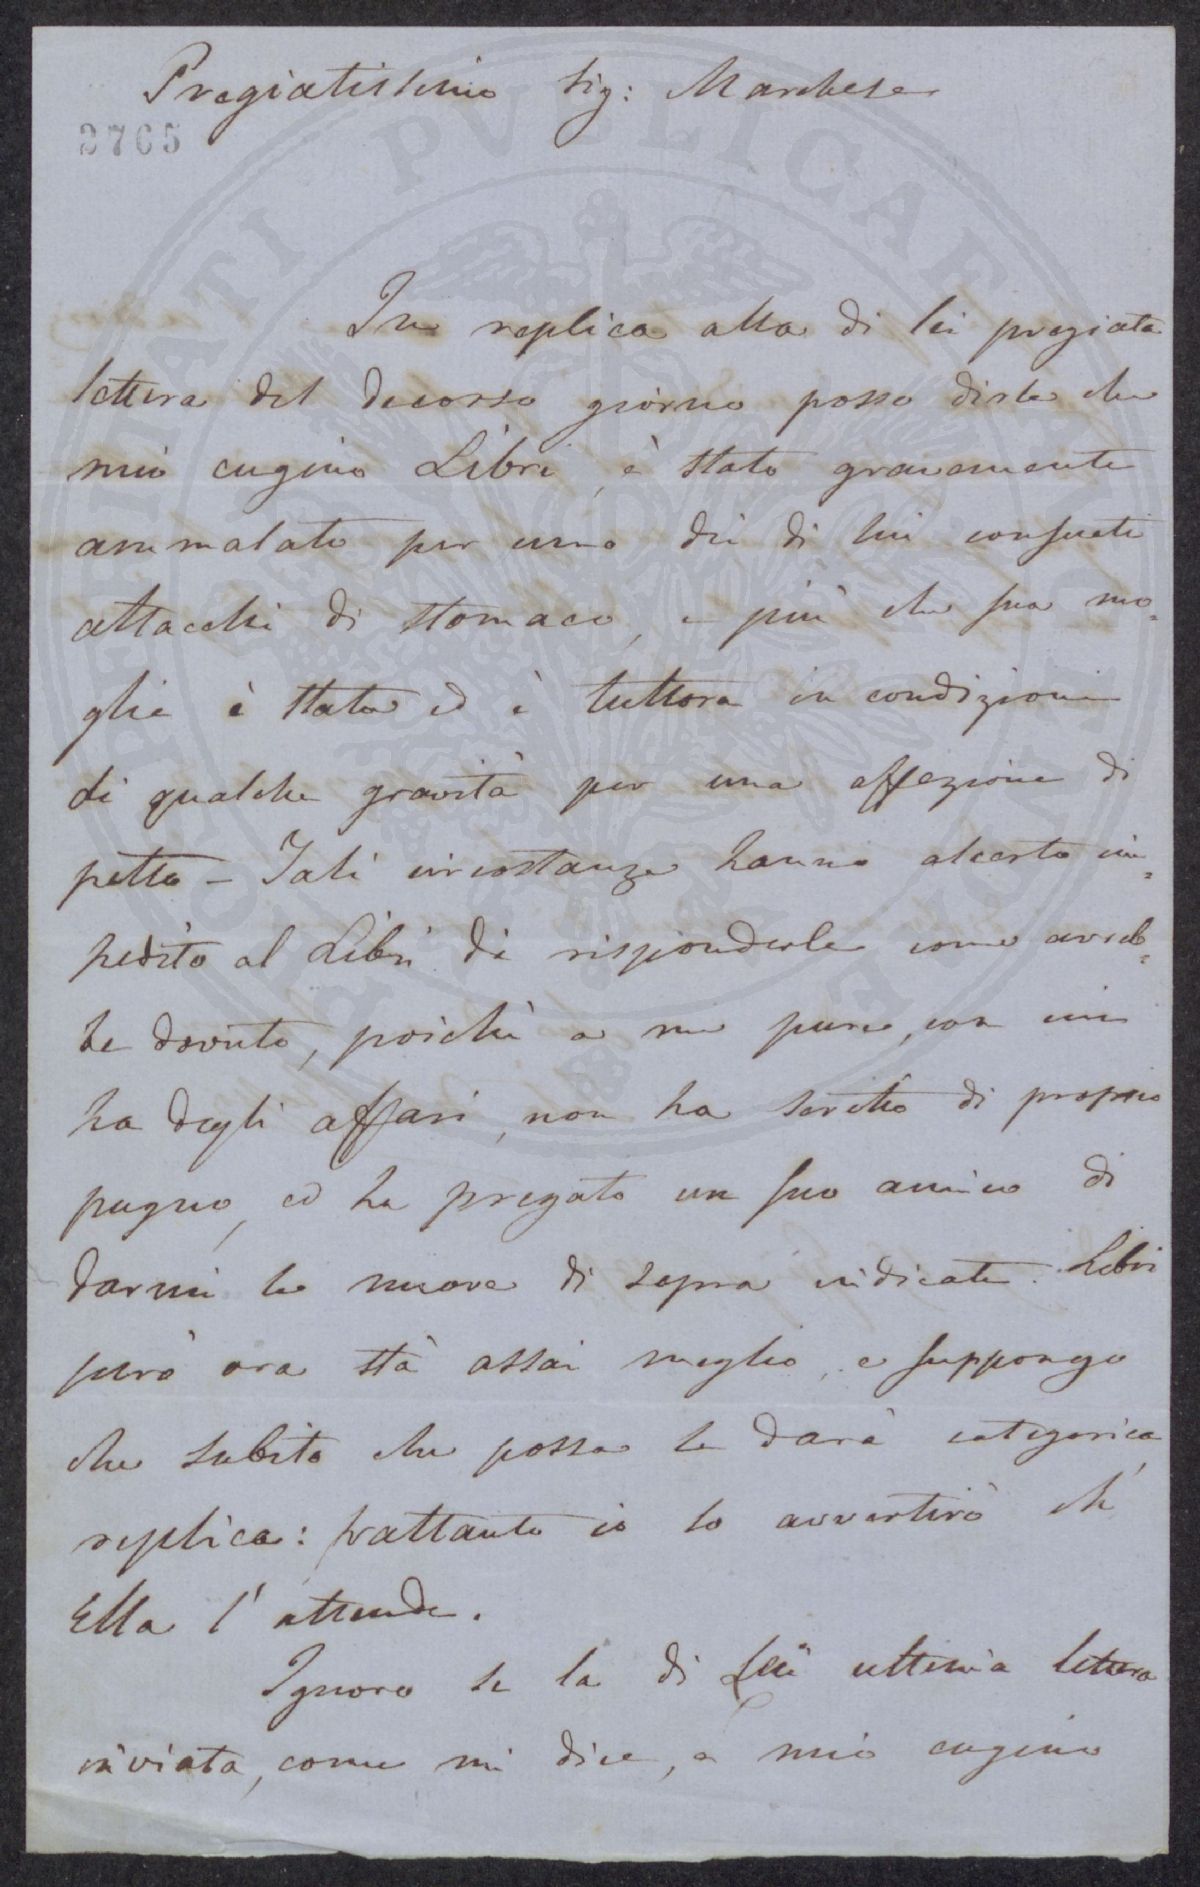 Pregiatissimo Sig: Marchese
2765
In replica alla di lei pregiata
lettera del decorso giorno posso dirle che
mio cugino Libri, è stato gravemente
ammalato per uno dei di lui consueti
attacchi di stomaco, e più che sua mo=
glie è stata ed è tuttora in condizioni
di qualche gravità per una affezione di
petto - Tali circostanze hanno alcerto im=
pedito al Libri di risponderle come avreb=
be dovuto, poichè a me pure, con cui
ha degli affari, non ha scritto di proprio
pugno, ed ha pregato un suo amico di
darmi le nuove di sopra indicate. Libri
però ora stà assai meglio, e suppongo
che subito che possa le darà categorica
replica: frattanto io lo avvertirò ch'
Ella l'attende.
Ignoro se la di Lei ultima lettera
inviata, come mi dice, a mio cugino
PERITATI PVBLICAE